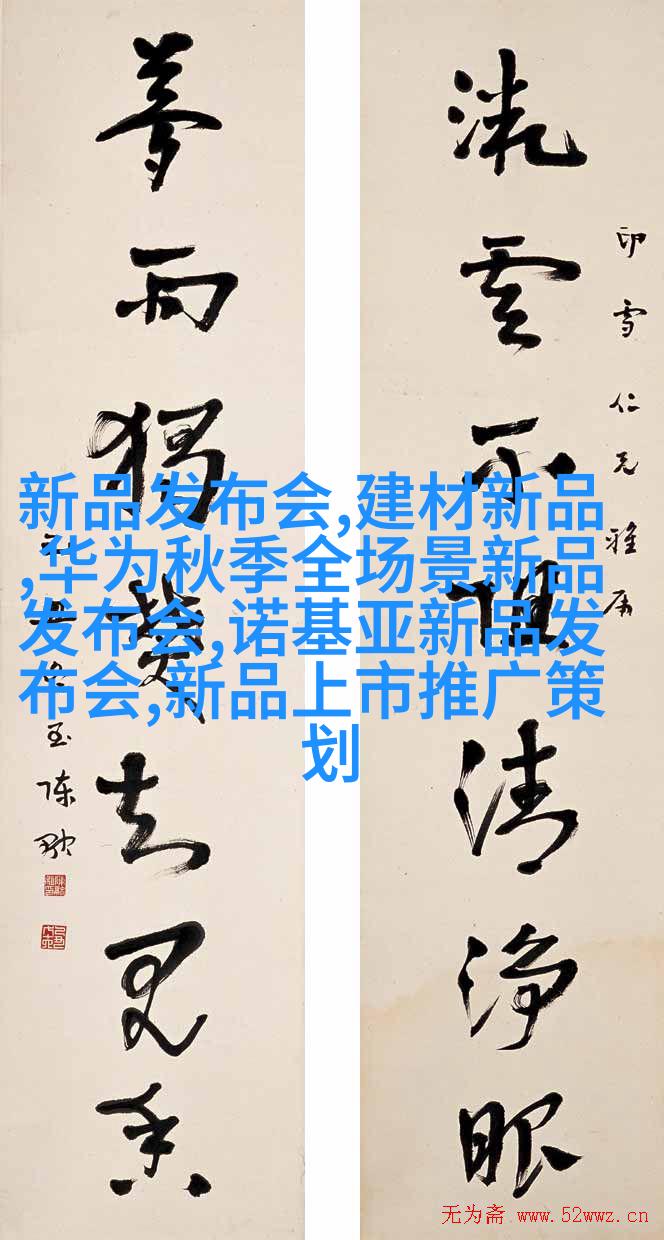 流雲不清淨眼
印雪仁兄雅属
夢雨獨知見香
玉陳融
新品发布会,建材新品
,华为秋季全场景新品
发布会,诺基亚新品发
布会,新品上市推广策
划
无为斋 www.52wwz.cn